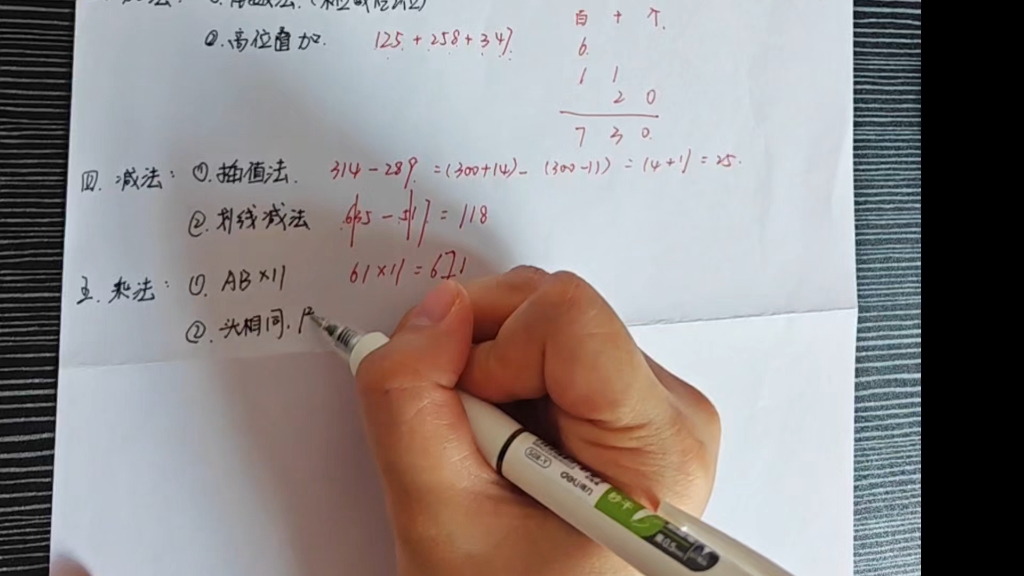 百 十 个.
②.高位叠加. 125.+258.+347.
6.
1 1
2 0
7 3 0.
四.减法: ①.插值法. 314-289.=(300+14)-(300-11)=14+11=25.
②.划线减法 635-517=118
五.乘法: ①.AB×11 61×11=671
②.头相同.
deli